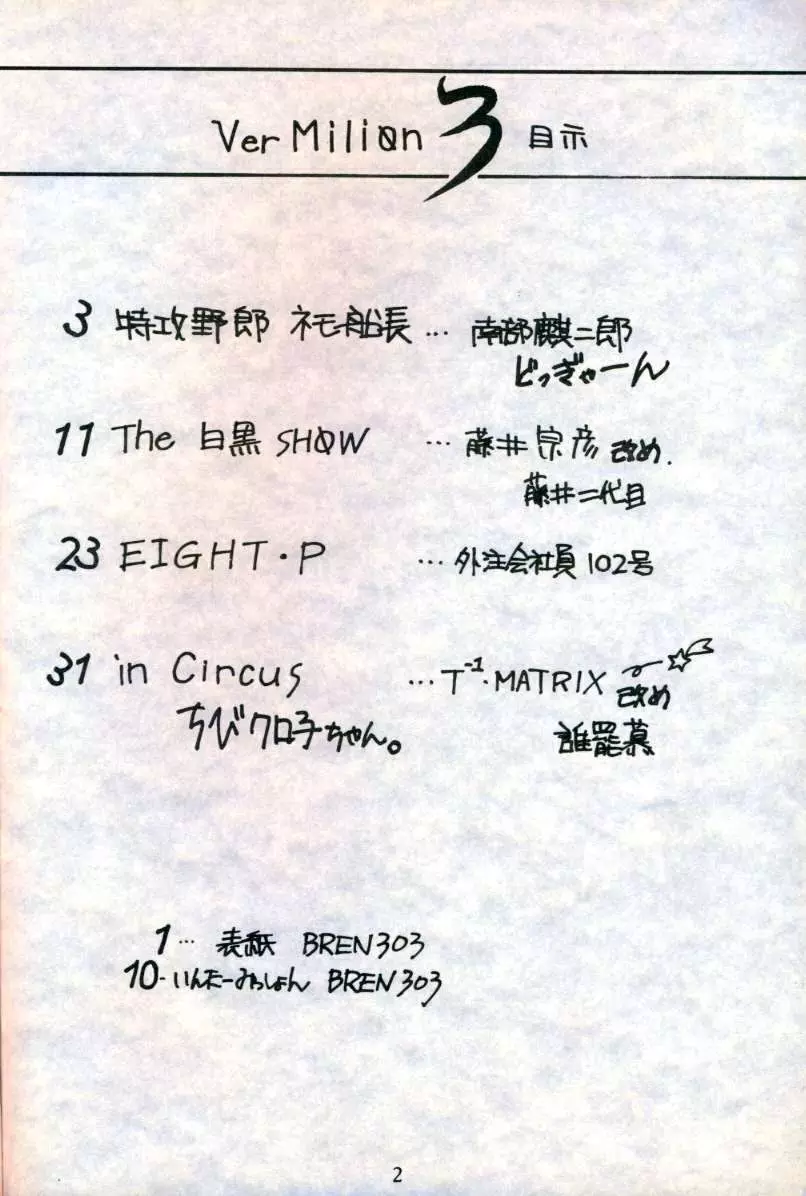 Ver Milion 3 目示
3 特攻野郎 ネモ船長 … 南部麒二郎
どっぎゃーん
11 The 白黒 SHOW … 藤井宗彦 改め.
藤井二代目
23 EIGHT・P … 外注会社員 102号
31 in Circus … T⁻¹・MATRIX 改め
ちびクロ子ちゃん。 誰罷慕
1 … 表紙 BREN303
10 ‥ いんたーみっしょん BREN303
2